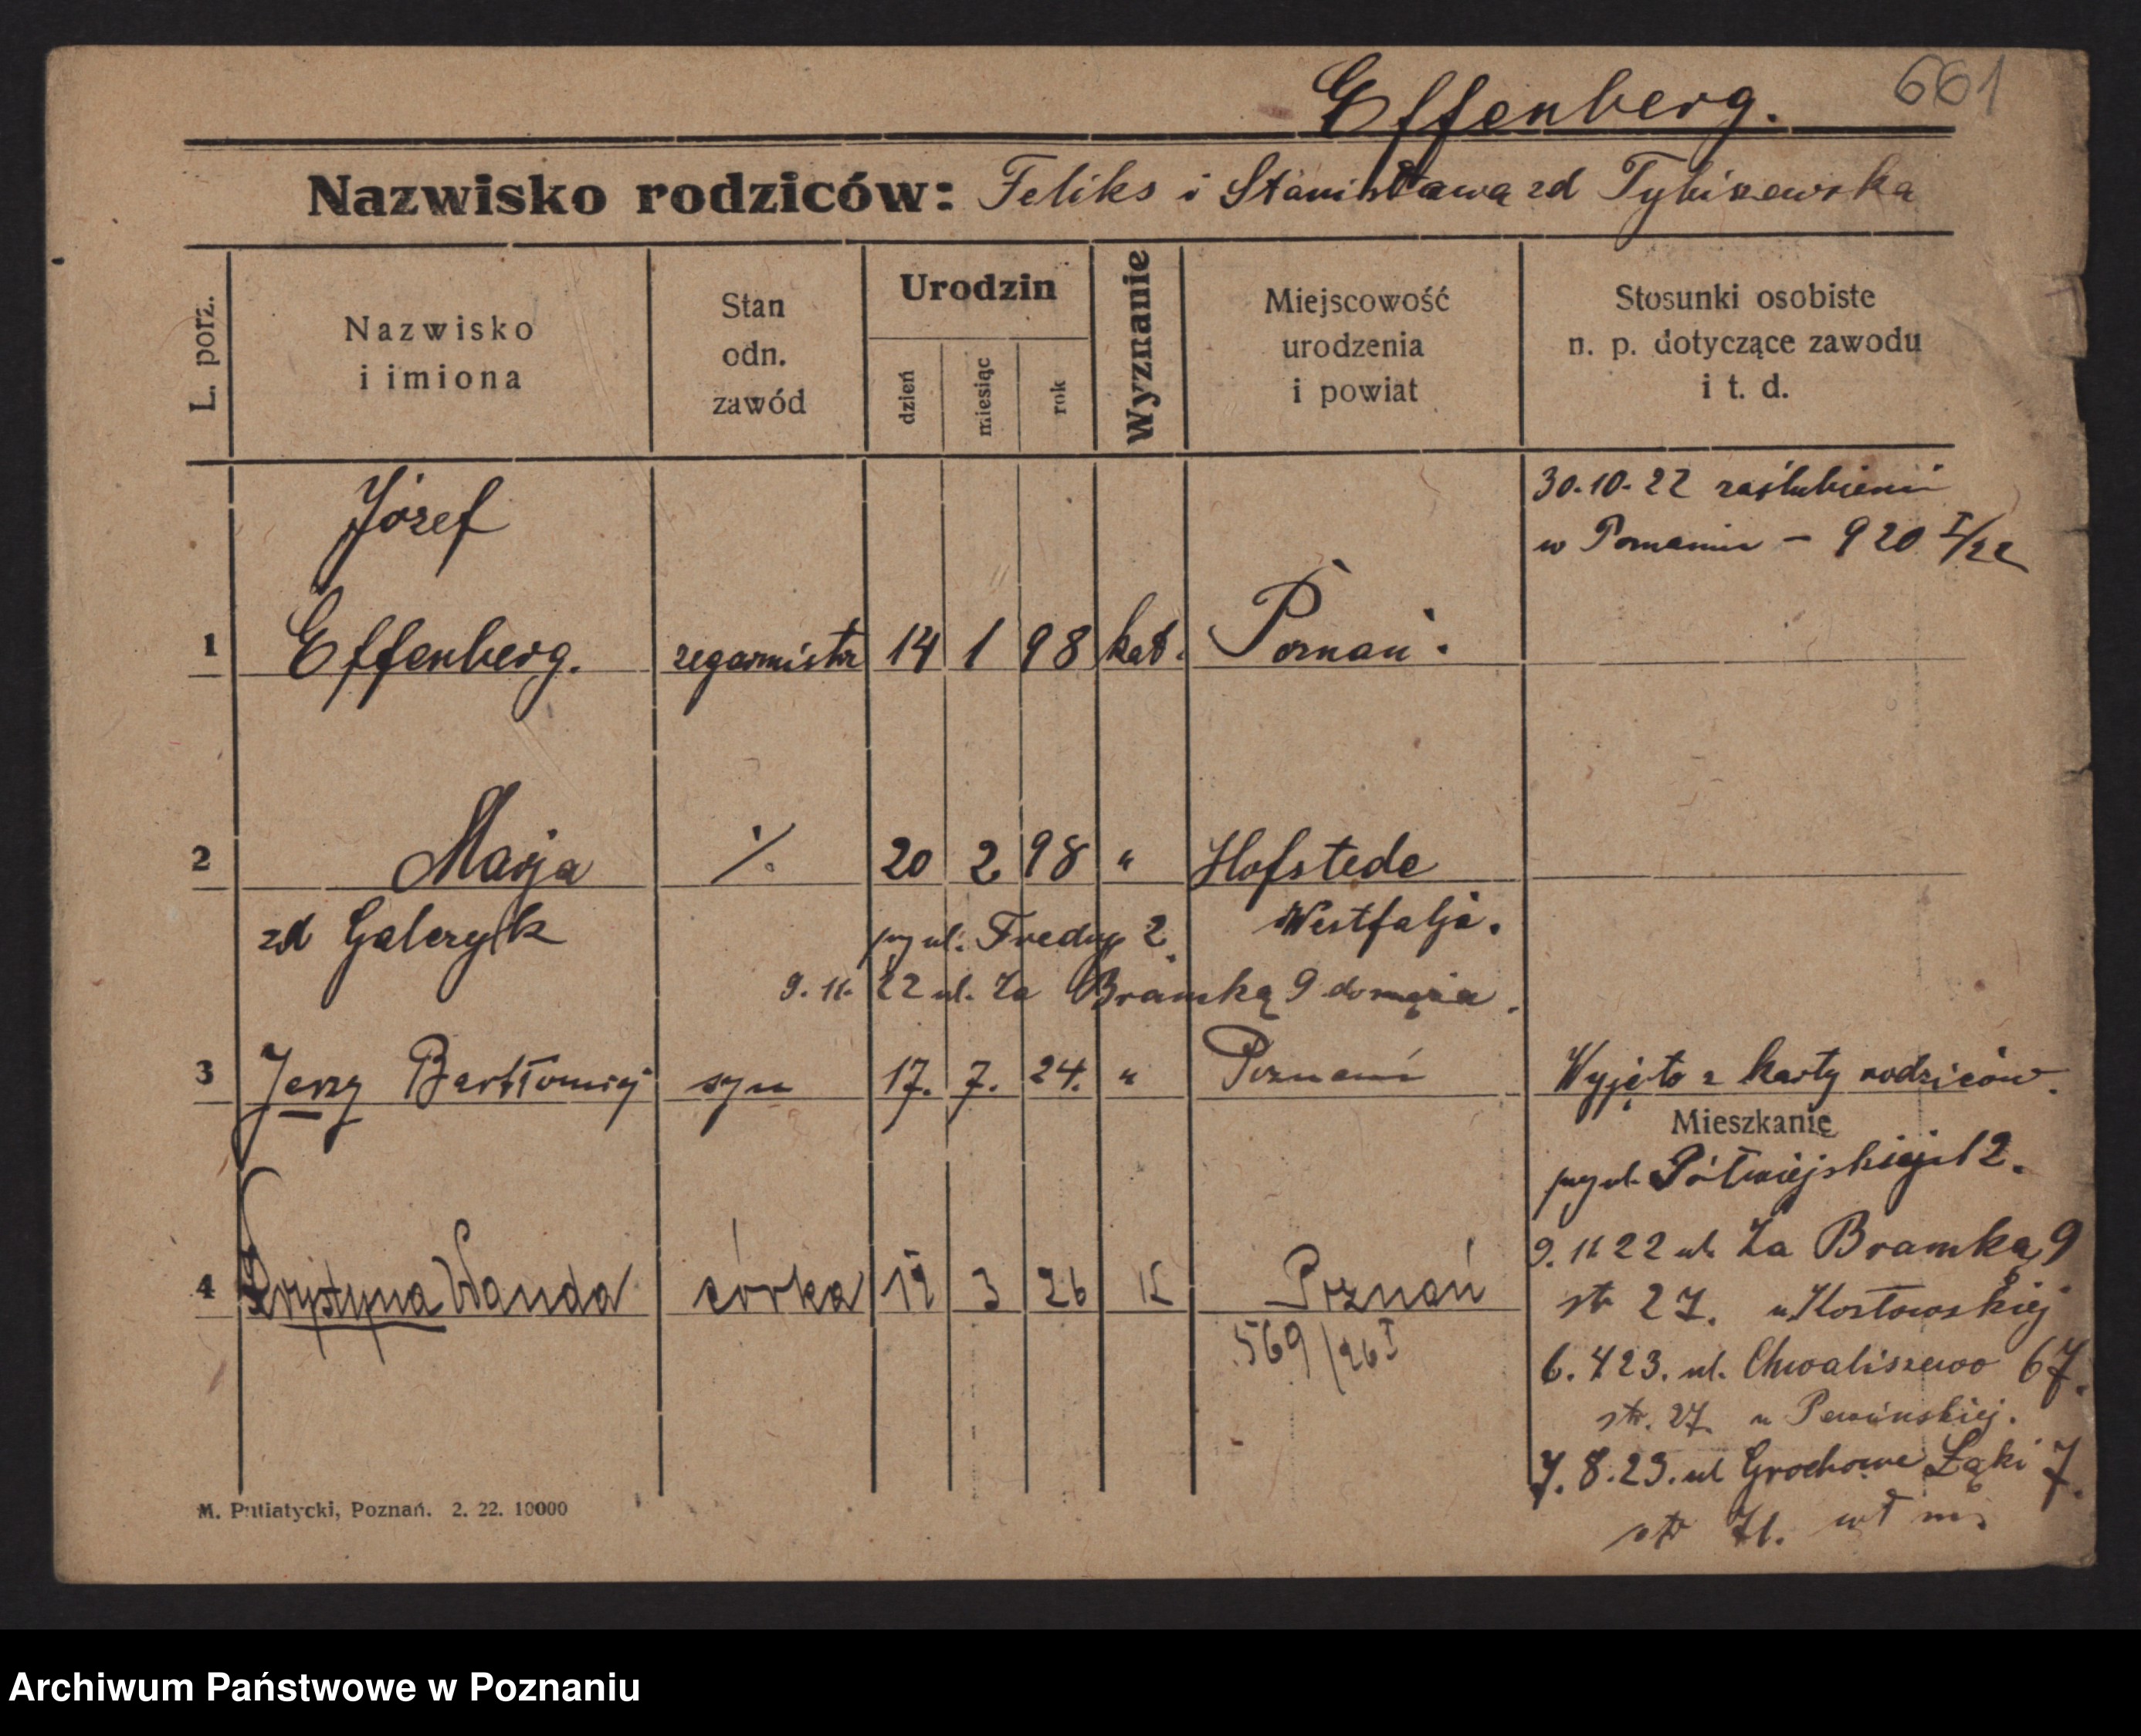 Effenberg. 661
Nazwisko rodziców: Feliks i Stanisława zd Tybiszewska
L. porz.
Nazwisko
i imiona
Stan
odn.
zawód
Urodzin
dzień
miesiąc
rok
Wyznanie
Miejscowość
urodzenia
i powiat
Stosunki osobiste
n. p. dotyczące zawodu
i t. d.
30.10.22 zaślubieni
w Poznaniu – 920 I/22
Józef
1 Effenberg. zegarmistrz 14 1 98 kat. Poznań.
2 Marja ·/. 20 2 98 " Hofstede
zd Galczyk przy ul. Fredry 2. Westfalja.
9.11.22 ul. Za Bramką 9 do męża.
3 Jerzy Bartłomiej syn 17. 7. 24. " Poznań Wyjęto z karty rodziców.
Mieszkanie
przy ul. Półwiejskiej 12.
9.11 22 ul. Za Bramką 9
str 27. u Kostowskiej
4 Krystyna Wanda córka 19 3 26 K Poznań
569/26 I
6.4 23. ul. Chwaliszewo 67.
str. 27. u
7.8.23. ul Grochowe Łąki 7.
str 71. wł m.
M. Putiatycki, Poznań. 2. 22. 10000
Archiwum Państwowe w Poznaniu